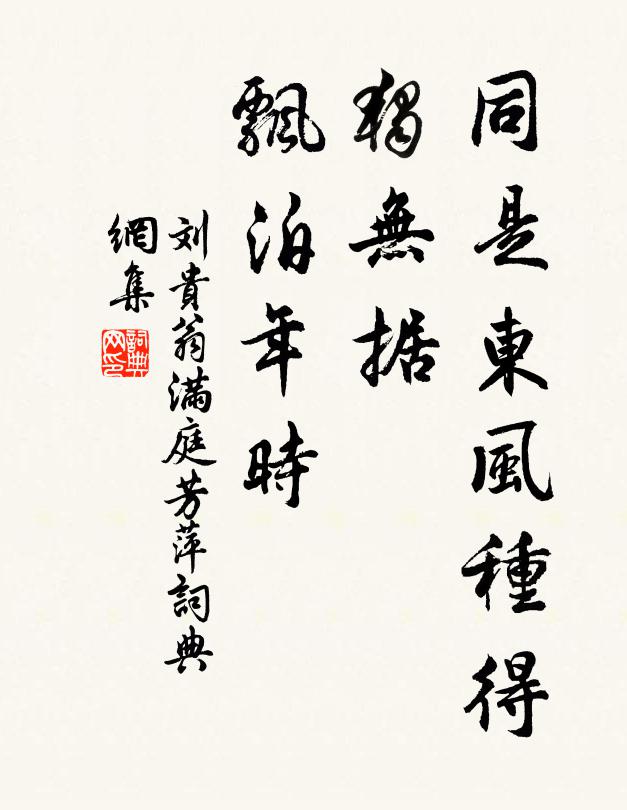 同是東風種得
獨無据
飄泊年時
刘貴翁滿庭芳萍詞典
網集
詞典
网印